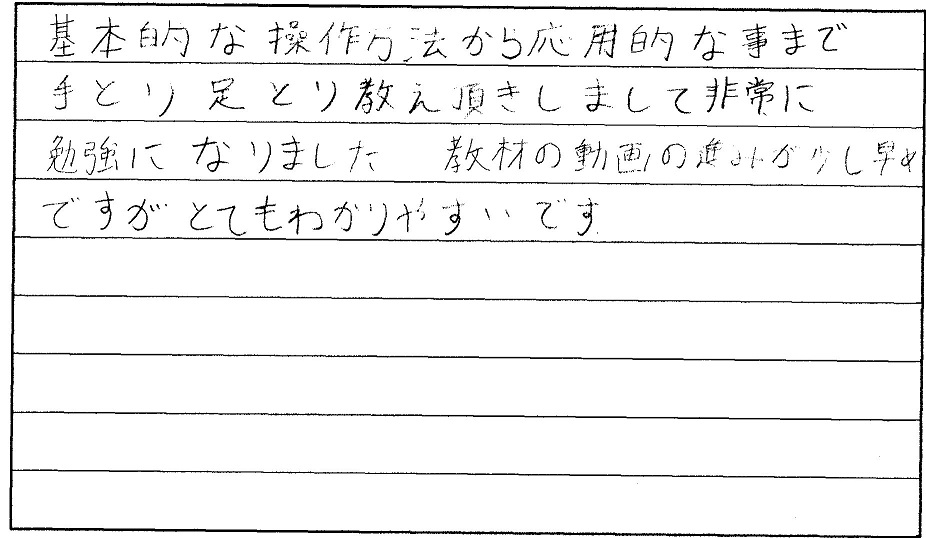 基本的な操作方法から応用的な事まで
手とり足とり教え頂きしまして非常に
勉強になりました 教材の動画の進みが少し早め
ですがとてもわかりやすいです